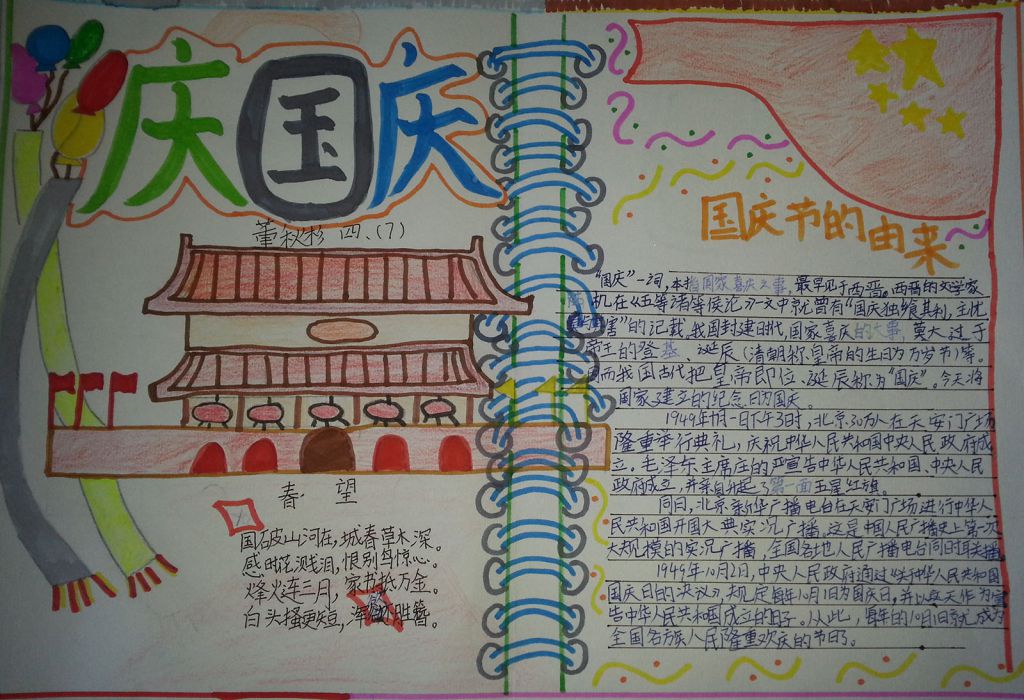 庆国庆
董秋杉 四、(7)
春·望
国破山河在，城春草木深。
感时花溅泪，恨别鸟惊心。
烽火连三月，家书抵万金。
白头搔更短，浑欲不胜簪。
国庆节的由来
“国庆”一词，本指国家喜庆之事，最早见于西晋。西晋的文学家
机在《五等诸等侯论》一文中就曾有“国庆独飨其利，主忧
害”的记载。我国封建时代，国家喜庆的大事，莫大过于
帝王的登基、诞辰（清朝称皇帝的生日为万岁节）等。
因而我国古代把皇帝即位、诞辰称为“国庆”。今天将
国家建立的纪念日为国庆。
1949年10月一日下午3时，北京30万人在天安门广场
隆重举行典礼，庆祝中华人民共和国中央人民政府成
立。毛泽东主席庄的严宣告中华人民共和国、中央人民
政府成立，并亲自升起了第一面五星红旗。
同日，北京新华广播电台在天安门广场进行中华人
民共和国开国大典实况广播。这是中国人民广播史上第一次
大规模的实况广播，全国各地人民广播电台同时联播。
1949年10月2日，中央人民政府通过《关于中华人民共和国
国庆日的决议》，规定每年10月1日为国庆日，并以这天作为宣
告中华人民共和国成立的日子。从此，每年的10月1日就成为
全国各族人民隆重欢庆的节日了。